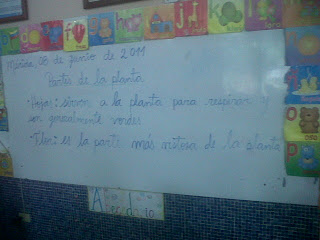 Mérida, 08 de junio de 2011
Partes de la planta
· Hojas: sirven a la planta para respirar y
son generalmente verdes
· Flor: es la parte más vistosa de la planta
Abecedario